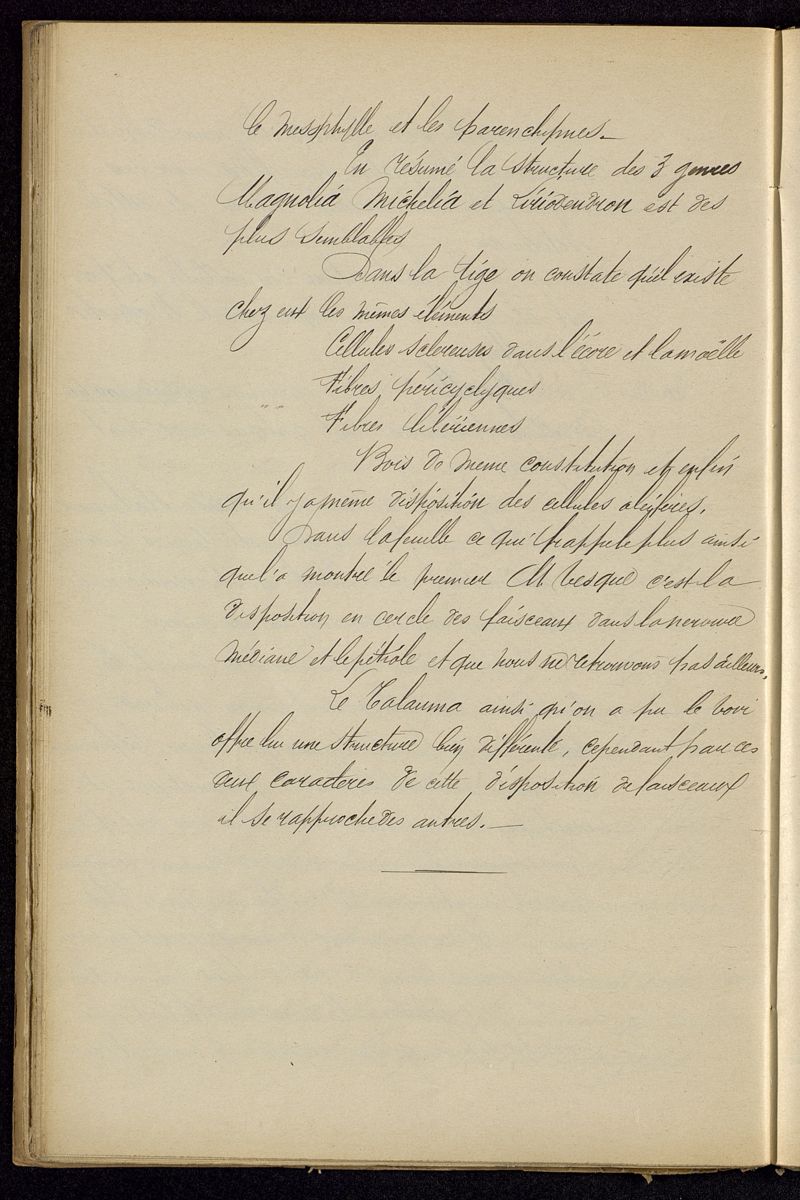 le mesophylle et les parenchymes._
En résumé la structure des 3 genres
Magnolia Michelia et Liriodendron est des
plus semblables
Dans la tige on constate qu'il existe
chez eux les mêmes éléments
Cellules scléreuses dans l'écorce et la moëlle
Fibres péricycliques
Fibres libériennes
Bois de meme constitution et enfin
qu'il y a même disposition des cellules oléifères.
Dans la feuille ce qui frappe le plus ainsi
que l'a montré le premier M Vesque c'est la
disposition en cercle des faisceaux dans la nervure
médiane et le pétiole et que nous ne retrouvons pas ailleurs.
Le Talauma ainsi qu'on a pu le voir
offre lui une structure bien différente, cependant par ces
caracteres de cette disposition de faisceaux
il se rapproche des autres._